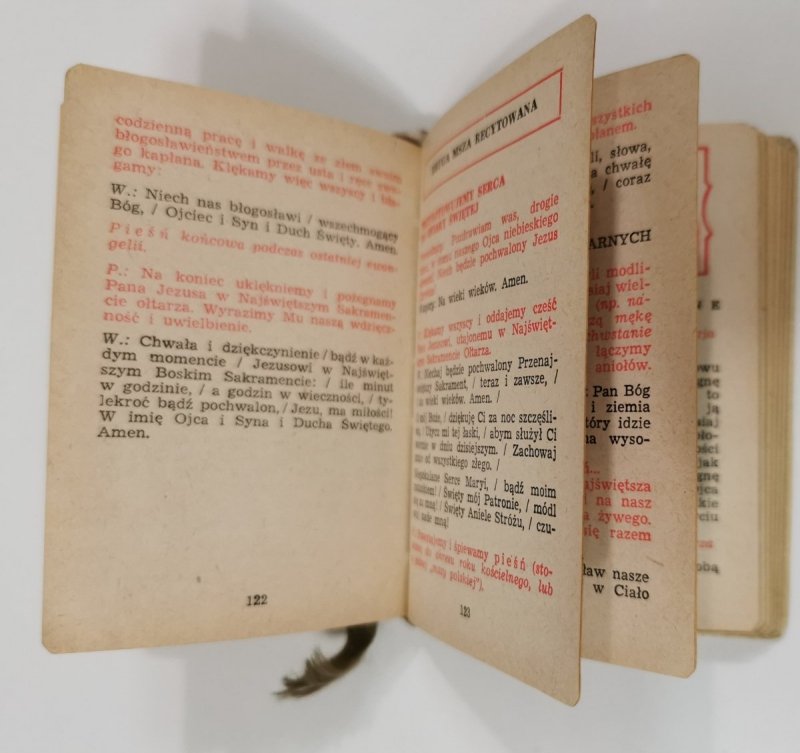 codzienną pracę i walkę ze złem swoim
błogosławieństwem przez usta i ręce swe-
go kapłana. Klękamy więc wszyscy i bła-
gamy:
W.: Niech nas błogosławi / wszechmogący
Bóg, / Ojciec i Syn i Duch Święty. Amen.
Pieśń końcowa podczas ostatniej ewan-
gelii.
P.: Na koniec uklęknijmy i pożegnamy
Pana Jezusa w Najświętszym Sakramen-
cie ołtarza. Wyrazimy Mu naszą wdzięcz-
ność i uwielbienie.
W.: Chwała i dziękczynienie / bądź w każ-
dym momencie / Jezusowi w Najświęt-
szym Boskim Sakramencie: / ile minut
w godzinie, / a godzin w wieczności, / ty-
lekroć bądź pochwalon, / Jezu, ma miłości!
W imię Ojca i Syna i Ducha Świętego.
Amen.
122
MSZA RECYTOWANA
SERCA
ŚWIĘTEJ
Pozdrawiam was, drogie
w imię naszego Ojca niebieskiego
Niech będzie pochwalony Jezus
Na wieki wieków. Amen.
Klękamy wszyscy i oddajemy cześć
Jezusowi, utajonemu w Najświęt-
Sakramencie Ołtarza.
Niechaj będzie pochwalony Przenaj-
Sakrament, / teraz i zawsze, /
na wieki wieków. Amen. /
mój Boże, / dziękuję Ci za noc szczęśli-
Użycz mi tej łaski, / abym służył Ci
w dniu dzisiejszym. / Zachowaj
od wszystkiego złego. /
Serce Maryi, / bądź moim
Święty mój Patronie, / módl
za mną! / Święty Aniele Stróżu, / czu-
nade mną!
i śpiewamy pieśń (sto-
do okresu roku kościelnego, lub
„mszy polskiej").
123
szystkich
łanem.
li, słowa,
a chwałę
/ coraz
ARNYCH
li modli-
siaj wiel-
(np. na-
szą mękę
chwstanie
łączymy
aniołów.
Pan Bóg
i ziemia
tóry idzie
na wyso-
ajświętsza
na nasz
a żywego.
się razem
ław nasze
w Ciało
N E
owu
gnę
to
ją
siaj
oło-
ości
jak
gnę
jca
kie
yciu
obą